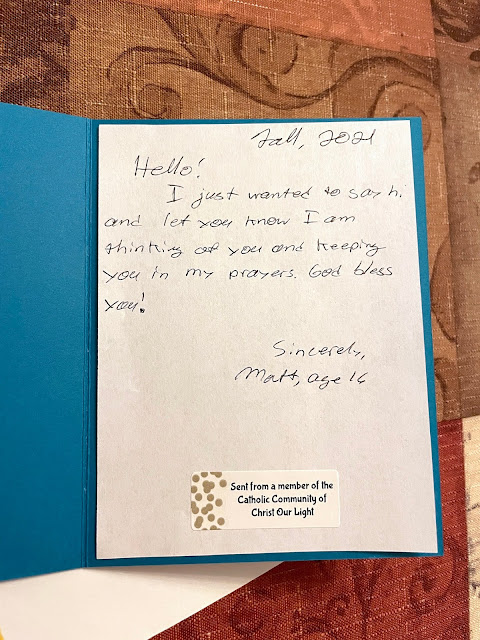 Fall, 2021
Hello!
I just wanted to say hi
and let you know I am
thinking of you and keeping
you in my prayers. God bless
you!
Sincerely,
Matt, age 16
Sent from a member of the
Catholic Community of
Christ Our Light